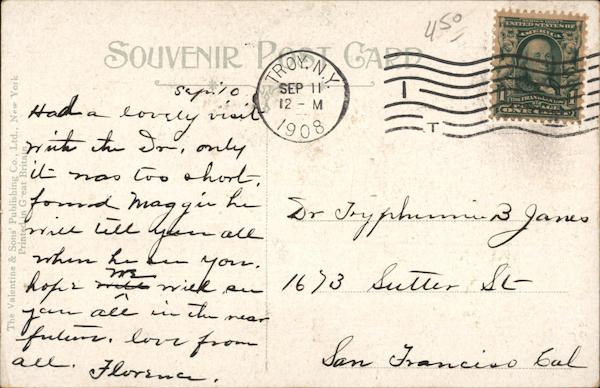 450
SOUVENIR POST CARD
TROY, N.Y.
SEP 11
12-M
1908
1
T
UNITED STATES OF
AMERICA
ONE
Sep. 10
Had a lovely visit
with the Dr, only
it was too short.
found Maggie he
will tell you all
when he see you.
hope we will see
you all in the near
future. love from
all. Florence.
Dr Tryphenia B Janes
1673 Sutter St
San Franciso Cal
The Valentine & Sons' Publishing Co., Ltd., New York
Printed in Great Britain